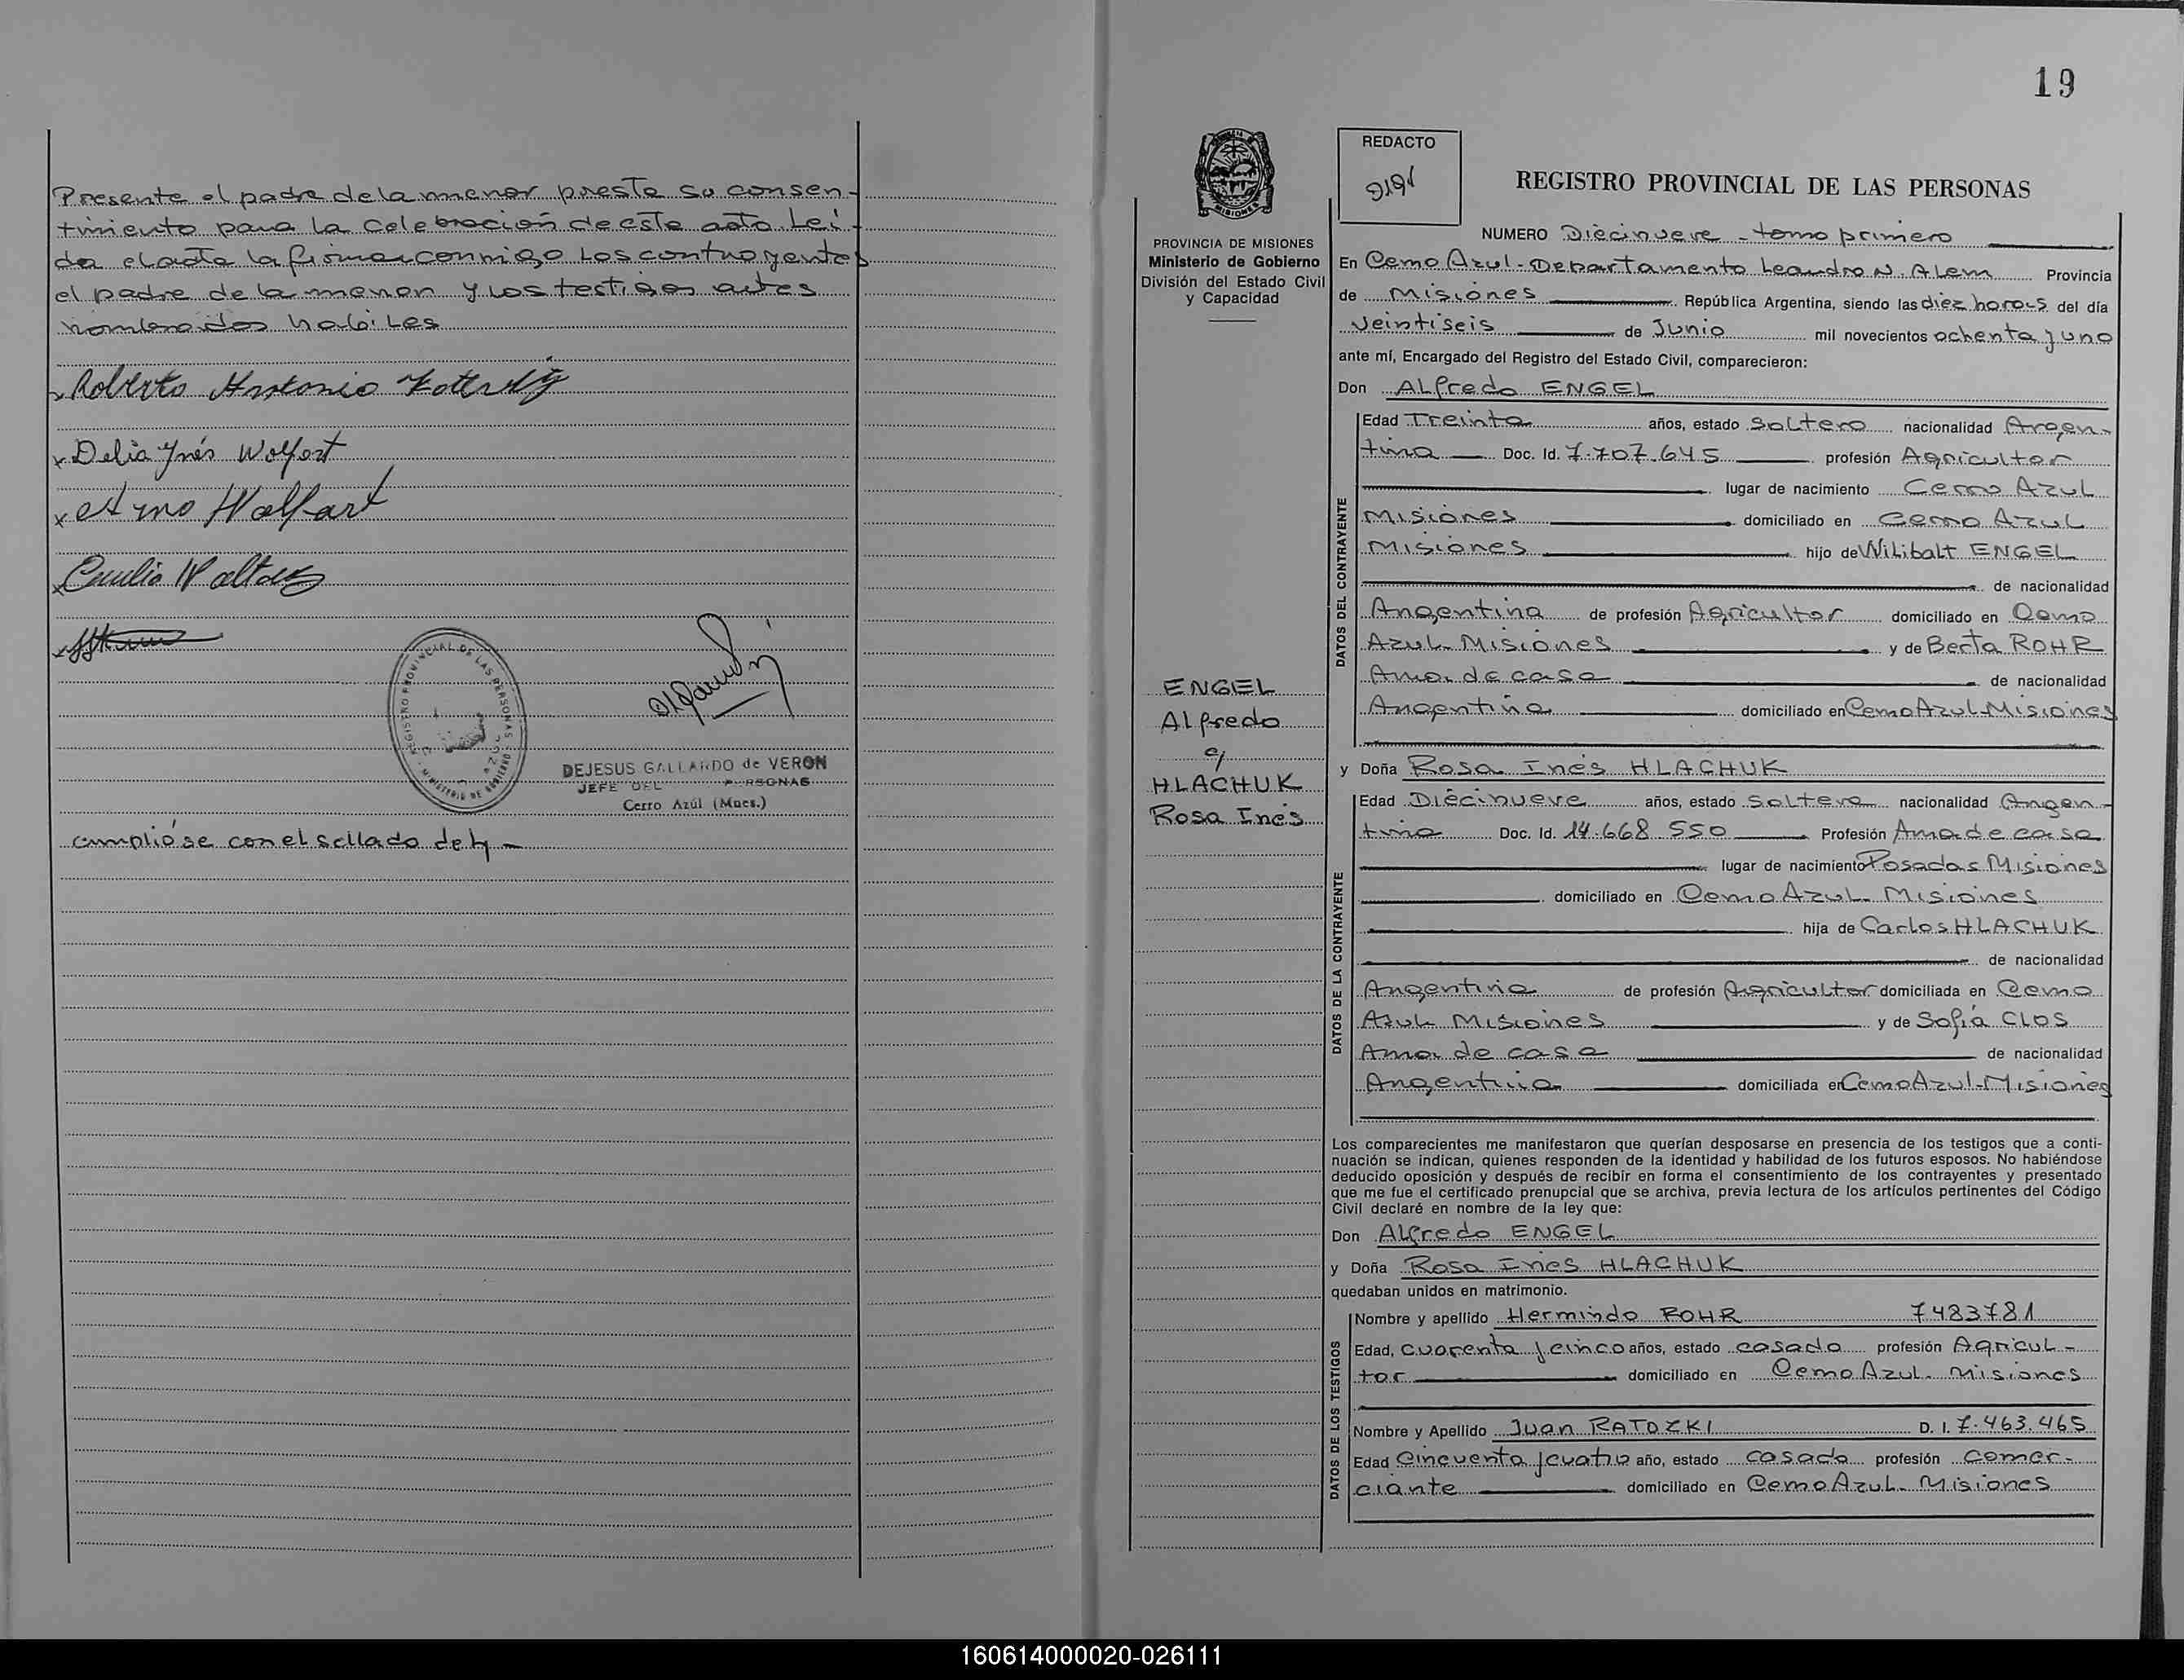 Presente el padre de la menor presta su consen-
timiento para la celebración de este acto. Leí-
da el acta la firman conmigo los contrayentes
el padre de la menor y los testigos antes
nombrados habiles
Roberto Antonio
Delia Inés Wolfart
Wolfart
REGISTRO PROVINCIAL DE LAS PERSONAS
DEJESUS GALLARDO de VERON
JEFE DEL PERSONAS
Cerro Azúl (Mnes.)
cumplióse con el sellado de ley -
19
MISIONES
PROVINCIA DE MISIONES
Ministerio de Gobierno
División del Estado Civil
y Capacidad
ENGEL
Alfredo
c/
HLACHUK
Rosa Inés
REDACTO
REGISTRO PROVINCIAL DE LAS PERSONAS
NUMERO Diecinueve - tomo primero
En Cerro Azul - Departamento Leandro N. Alem Provincia
de Misiones República Argentina, siendo las diez horas del día
Veintiseis de Junio mil novecientos ochenta y uno
ante mí, Encargado del Registro del Estado Civil, comparecieron:
Don Alfredo ENGEL
DATOS DEL CONTRAYENTE
Edad Treinta años, estado Soltero nacionalidad Argen-
tina Doc. Id. 7.707.645 profesión Agricultor
lugar de nacimiento Cerro Azul
Misiones domiciliado en Cerro Azul
Misiones hijo de Wilibalt ENGEL
de nacionalidad
Argentina de profesión Agricultor domiciliado en Cerro
Azul- Misiones y de Berta ROHR
Ama de casa de nacionalidad
Argentina domiciliado en Cerro Azul-Misiones
y Doña Rosa Inés HLACHUK
DATOS DE LA CONTRAYENTE
Edad Diecinueve años, estado Soltera nacionalidad Argen-
tina Doc. Id. 14.668.550 Profesión Ama de casa
lugar de nacimiento Posadas Misiones
domiciliado en Cerro Azul- Misiones
hija de Carlos HLACHUK
de nacionalidad
Argentina de profesión Agricultor domiciliada en Cerro
Azul- Misiones y de Sofía CLOS
Ama de casa de nacionalidad
Argentina domiciliada en Cerro Azul-Misiones
Los comparecientes me manifestaron que querían desposarse en presencia de los testigos que a conti-
nuación se indican, quienes responden de la identidad y habilidad de los futuros esposos. No habiéndose
deducido oposición y después de recibir en forma el consentimiento de los contrayentes y presentado
que me fue el certificado prenupcial que se archiva, previa lectura de los artículos pertinentes del Código
Civil declaré en nombre de la ley que:
Don Alfredo ENGEL
y Doña Rosa Inés HLACHUK
quedaban unidos en matrimonio.
DATOS DE LOS TESTIGOS
Nombre y apellido Hermindo ROHR 7483781
Edad, cuarenta y cinco años, estado casado profesión Agricul-
tor domiciliado en Cerro Azul- Misiones
Nombre y Apellido Juan RATOZKI D. I. 7.463.465
Edad Cincuenta y cuatro año, estado casado profesión Comer-
ciante domiciliado en Cerro Azul- Misiones
160614000020-026111